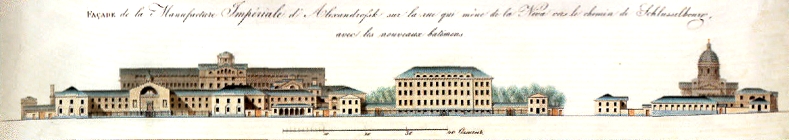 FAÇADE de la Manufacture Impériale d'Alexandrofsk sur la rue qui mène de la Néva vers le chemin de Schlusselbourg,
avec les nouveaux batimens